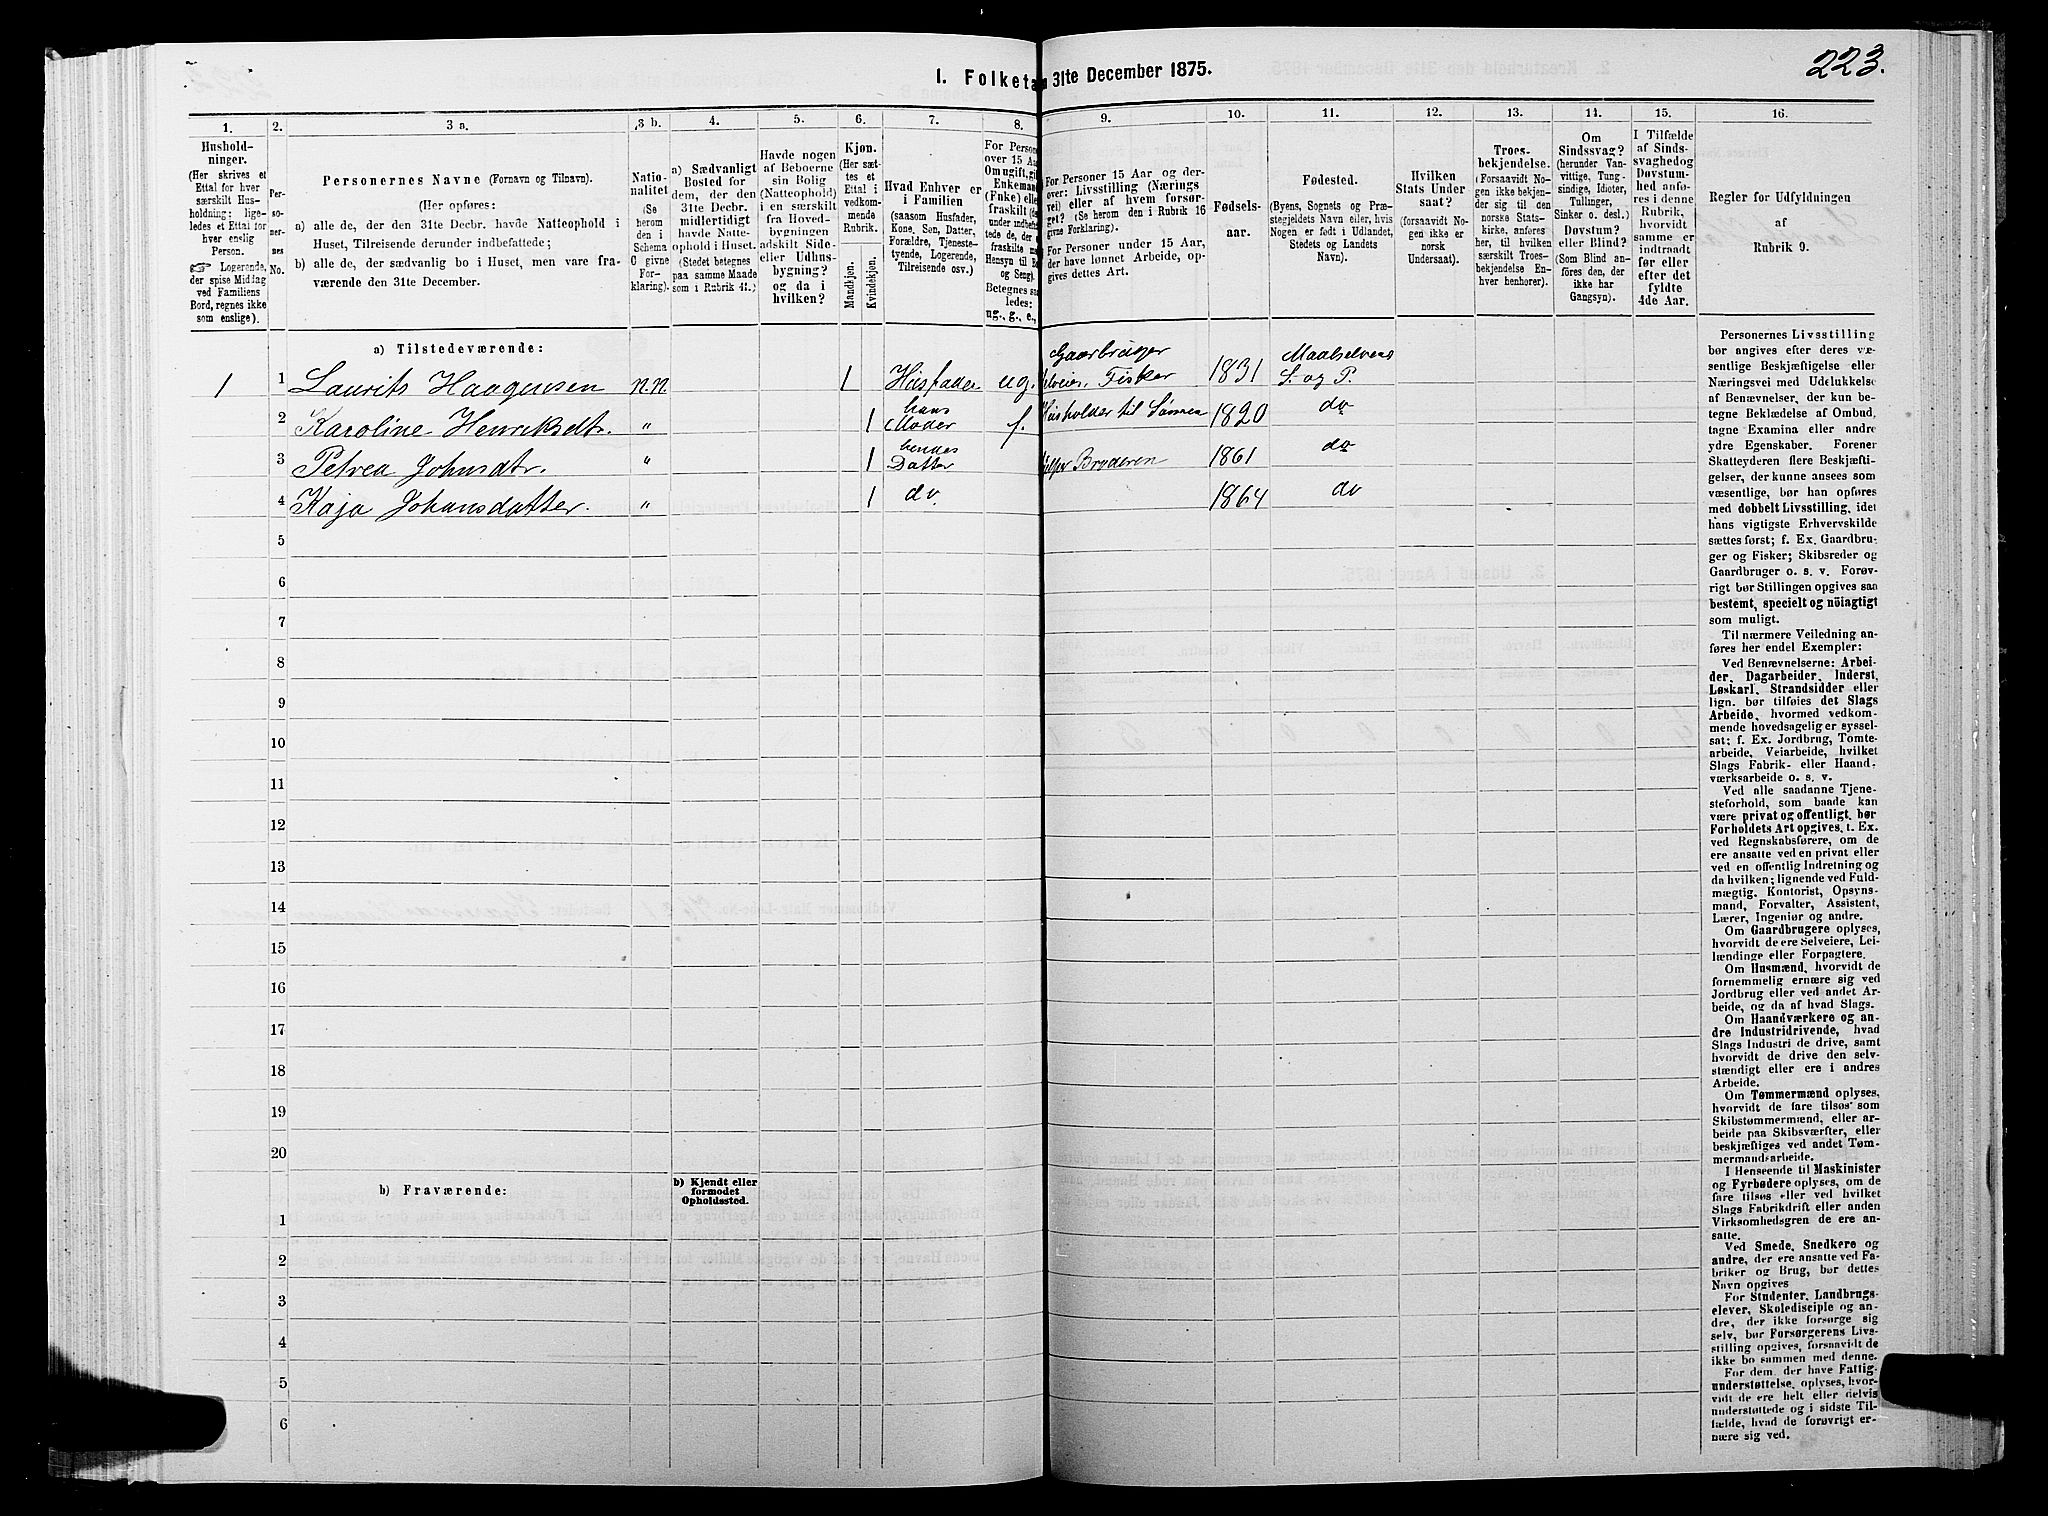 I. Folketa
n 31te December 1875.
223.
1. 2. 3 a. 3 b. 4. 5. 6. 7. 8. 9. 10. 11. 12. 13. 14. 15. 16.
Hushold-
ninger.
(Her skrives et
Ettal for hver
særskilt Hus-
holdning; lige-
ledes et Ettal for
hver enslig
Person.
☞ Logerende,
der spise Middag
ved Familiens
Bord, regnes ikke
som enslige).
Per-
so-
ner-
nes
No.
Personernes Navne (Fornavn og Tilnavn).
(Her opføres:
a) alle de, der den 31te Decbr. havde Natteophold i
Huset, Tilreisende derunder indbefattede;
b) alle de, der sædvanlig bo i Huset, men vare fra-
værende den 31te December.
Natio-
nalitet
(Se
herom
den i
Schema
C givne
For-
klaring).
a) Sædvanligt
Bosted for
dem, der den
31te Decbr.
midlertidigt
havde Natte-
ophold i Huset.
(Stedet betegnes
paa samme Maade
som i Rubrik 11.)
Havde nogen
af Beboerne
sin Bolig
(Natteophold)
i en særskilt
fra Hoved-
bygningen
adskilt Side-
eller Udhus-
bygning?
og da i
hvilken?
Kjøn.
(Her sæt-
tes et
Ettal i
vedkom-
mende
Rubrik.
Mandkjøn.
Kvindekjøn.
Hvad Enhver er
i Familien
(saasom Husfader,
Kone, Søn, Datter,
Forældre, Tjeneste-
tyende, Logerende,
Tilreisende osv.)
For Personer
over 15 Aar
Om ugift, gi
Enkemand
(Enke) ell
fraskilt (
under indbefat-
tede de, der
fraskilte m
Hensyn til B
og Seng).
Betegnes saa-
ledes:
ug., g., e.,
For Personer 15 Aar og der-
over: Livsstilling (Nærings
vei) eller af hvem forsør-
get? (Se herom den i Rubrik 16
givne Forklaring).
For Personer under 15 Aar,
der have lønnet Arbeide, op-
gives dettes Art.
Fødsels-
aar.
Fødested.
(Byens, Sognets og Præ-
stegjeldets Navn eller, hvis
Nogen er født i Udlandet,
Stedets og Landets
Navn).
Hvilken
Stats Under
saat?
(forsaavidt No-
gen ikke er
norsk
Undersaat).
Troes-
bekjendelse.
(Forsaavidt No-
gen ikke bekjen-
der sig til den
norske Stats-
kirke, anføres
her, til hvilken
særskilt Troes-
bekjendelse En-
hver henhorer).
Om
Sindssvag?
(herunder Van-
vittige, Tung-
sindige, Idioter,
Tullinger,
Sinker o. desl.)
Døvstum?
eller Blind?
(Som Blind an-
føres den, der
ikke har
Gangsyn).
I Tilfælde
af Sinds-
svaghed og
Døvstum-
hed anfø-
res i denne
Rubrik,
hvorvidt
samme er
indtraadt
før eller
efter det
fyldte
4de Aar.
Regler for Udfyldningen
af
Rubrik 9.
a) Tilstedeværende:
1 1 Laurits Haagensen n.n. 1 Husfader ug. Gaarbruger
elveier, Fisker 1831 Maalselvens
S. og P.
2 Karoline Henriksdtr. " 1 hans
Moder f. Husholder til Sønnen 1820 do
3 Petrea Johnsdtr. " 1 hendes
Datter jelper Broderen 1861 do
4 Kaja Johansdatter. " 1 do. 1864 do
5
6
7
8
9
10
11
12
13
14
15
16
17
18
19
20
b) Fraværende:
b) Kjendt eller
formodet
Opholdssted.
1
2
3
4
5
6
Personernes Livsstilling
bør angives efter deres væ-
sentlige Beskjæftigelse eller
Næringsvei med Udelukkelse
af Benævnelser, der kun be-
tegne Beklædelse af Ombud,
tagne Examina eller andre
ydre Egenskaber. Forener
Skatteyderen flere Beskjæfti-
gelser, der kunne ansees som
væsentlige, bør han opføres
med dobbelt Livsstilling, idet
hans vigtigste Erhvervskilde
sættes først; f. Ex. Gaardbru-
ger og Fisker; Skibsreder og
Gaardbruger o. s. v. Forøv-
rigt bør Stillingen opgives saa
bestemt, specielt og nöiagtigt
som muligt.
Til nærmere Veiledning an-
føres her endel Exempler:
Ved Benævnelserne: Arbei-
der, Dagarbeider, Inderst,
Løskarl, Strandsidder eller
lign. bør tilføies det Slags
Arbeide, hvormed vedkom-
mende hovedsagelig er syssel-
sat; f. Ex. Jordbrug, Tomte-
arbeide, Veiarbeide, hvilket
Slags Fabrik- eller Haand-
værksarbeide o. s. v.
Ved alle saadanne Tjene-
steforhold, som baade kan
være privat og offentligt, bør
Forholdets Art opgives, t. Ex.
ved Regnskabsførere, om de
ere ansatte ved en privat eller
ved en offentlig Indretning og
da hvilken; lignende ved Fuld-
mægtig, Kontorist, Opsyns-
mand, Forvalter, Assistent,
Lærer, Ingeniør og andre.
Om Gaardbrugere oplyses,
hvorvidt de ere Selveiere, Lei-
lændinge eller Forpagtere.
Om Husmænd, hvorvidt de
fornemmelig ernære sig ved
Jordbrug eller ved andet Ar-
beide, og da af hvad Slags.
Om Haandværkere og an-
dre Industridrivende, hvad
Slags Industri de drive, samt
hvorvidt de drive den selv-
stændigt eller ere i andres
Arbeide.
Om Tømmermænd oplyses,
hvorvidt de fare tilsøs som
Skibstømmermænd, eller ar-
beide paa Skibsværfter, eller
beskjæftiges ved andet Tøm-
mermandsarbeide.
I Henseende til Maskinister
og Fyrbødere oplyses, om de
fare tilsøs eller ved hvilket
Slags Fabrikdrift eller anden
Virksomhedsgren de ere an-
satte.
Ved Smede, Snedkere og
andre, der ere ansatte ved Fa-
briker og Brug, bør dettes
Navn opgives
For Studenter, Landbrugs-
elever, Skoledisciple og an-
dre, der ikke forsørge sig
selv, bør Forsørgerens Livs-
stilling opgives, forsaavidt de
ikke bo sammen med denne.
For dem, der have Fattig-
understøttelse, oplyses, hvor-
vidt de ere helt eller delvis
understøttede og i sidste Til-
fælde, hvad de forøvrigt er-
nære sig ved.